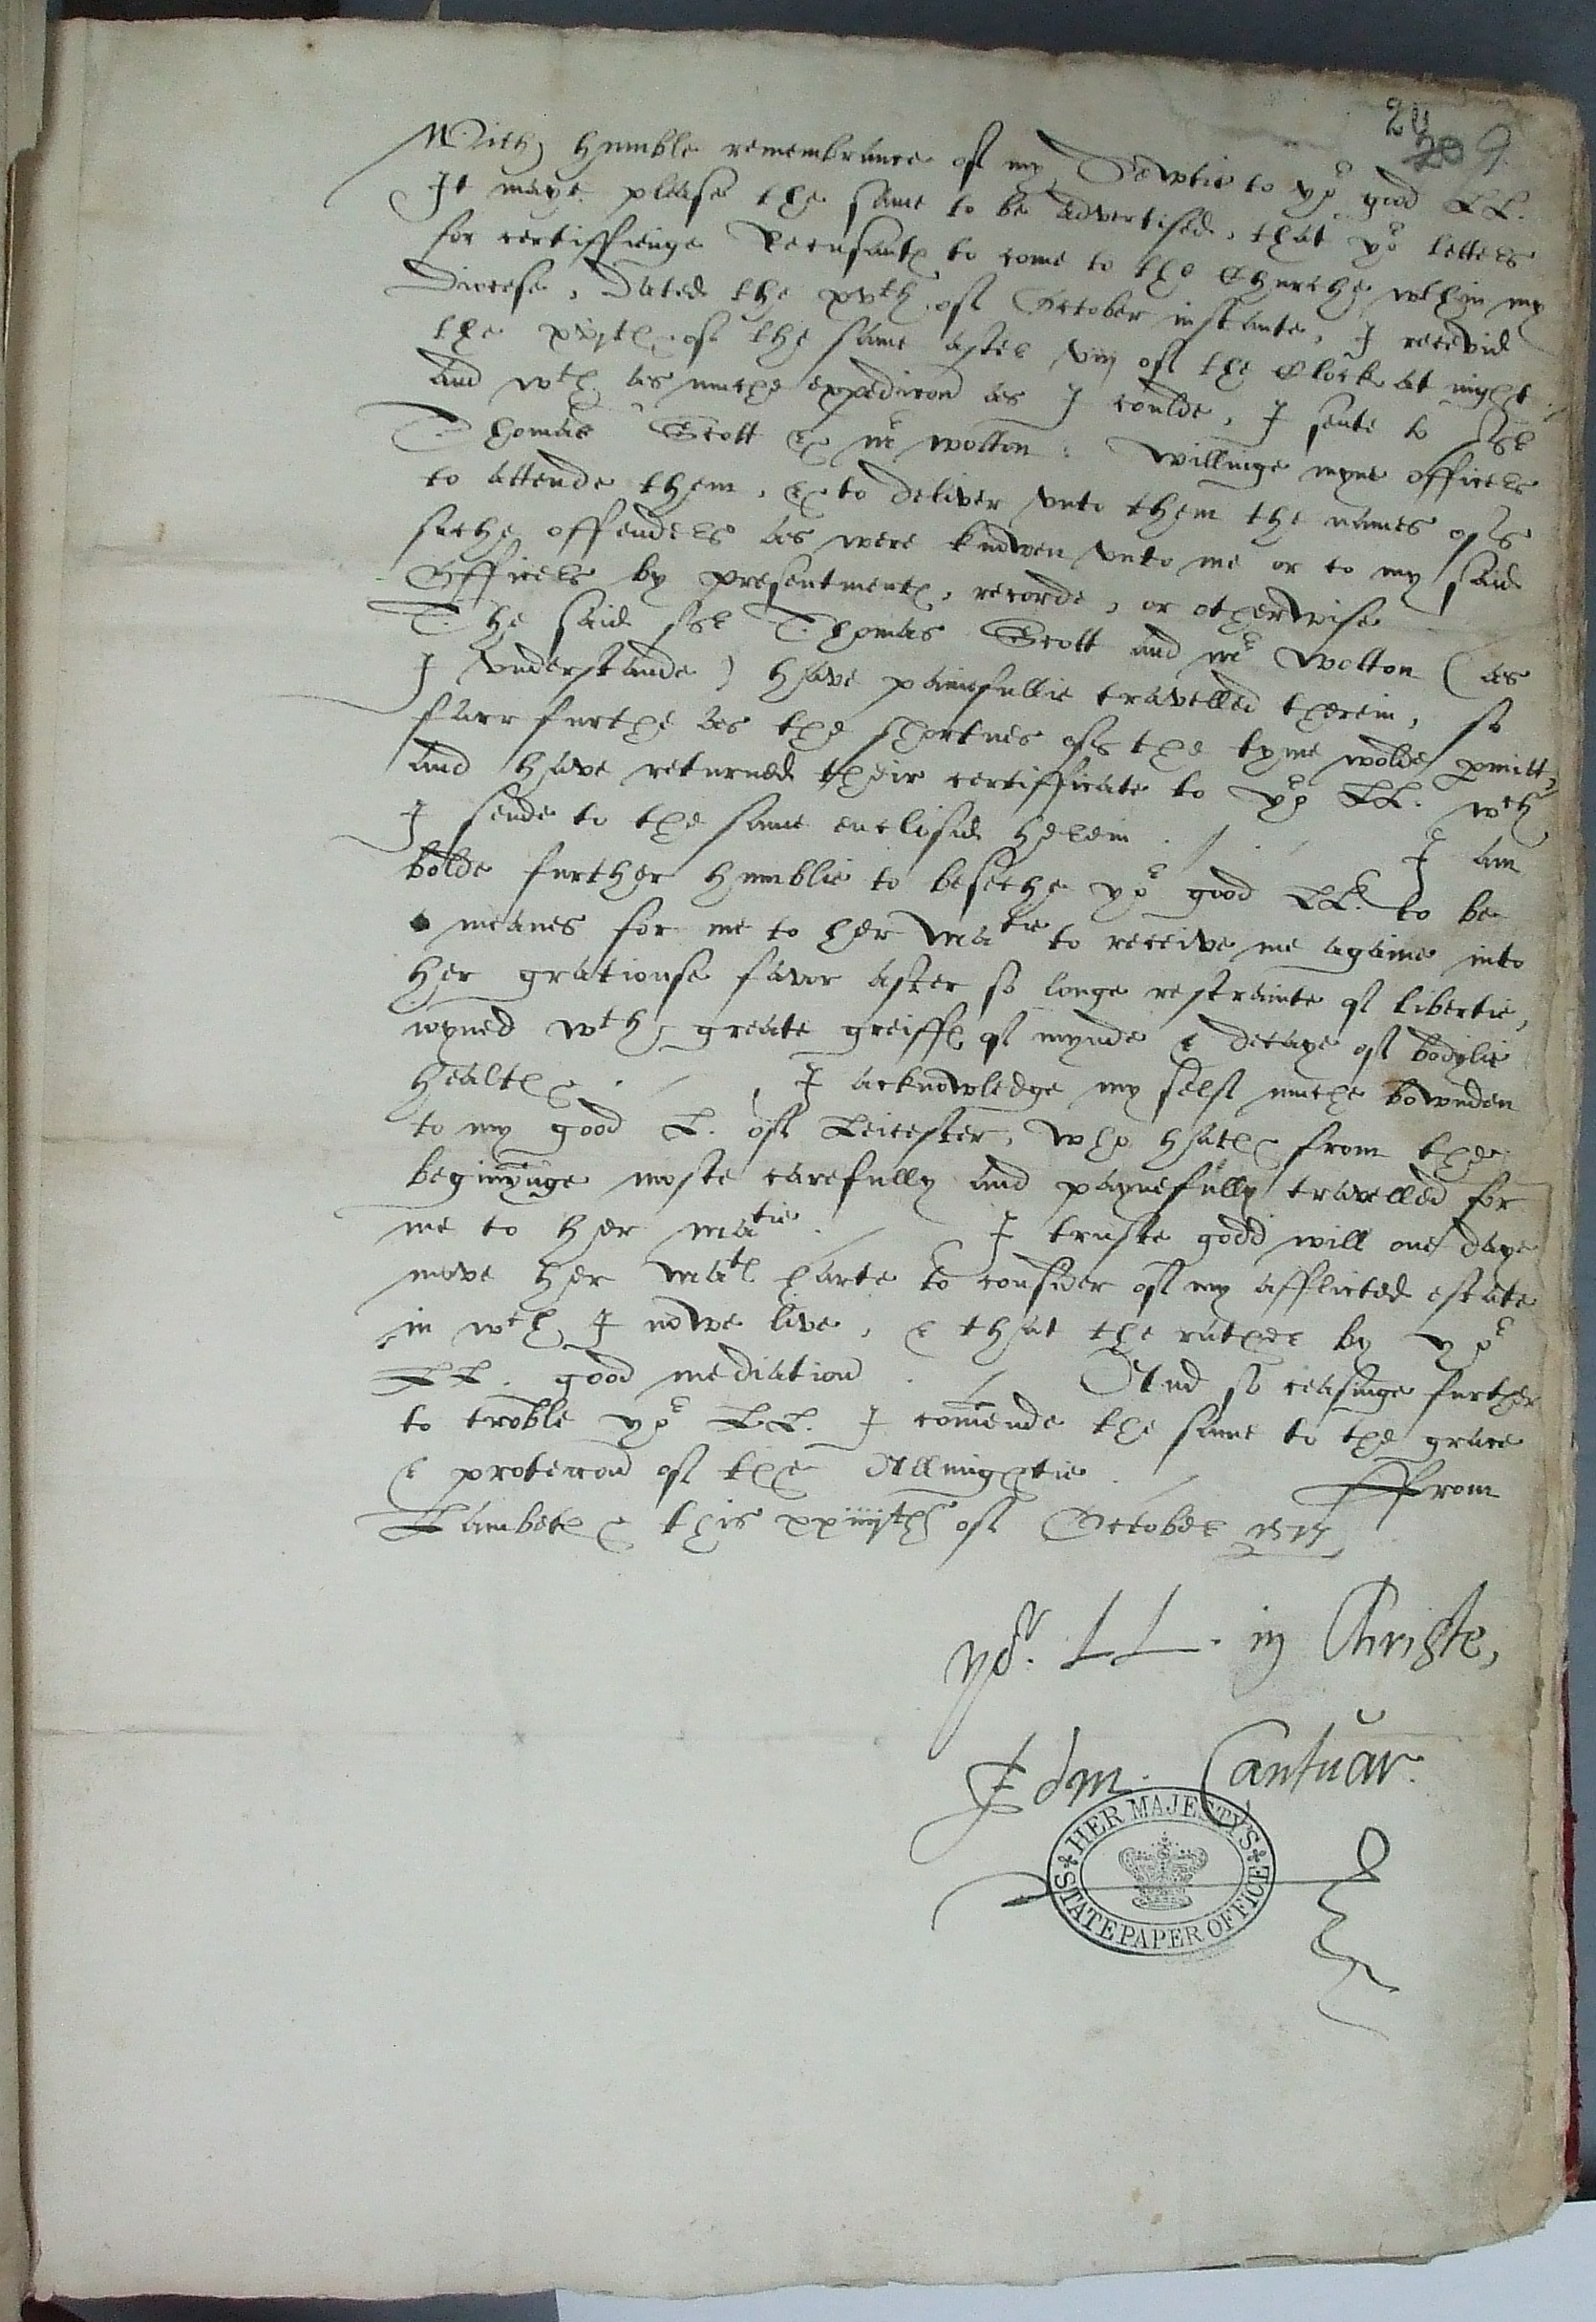 20
20 9
With humble remembrance of my dewtie to yor good LL.
It maye please the same to be advertised, that yor letters
for certiffienge Recusants to come to the Churche wthin my
Diocese, Dated the xvth of October instante, I receivid
the xvjth of the same after viij of the Clock at nyght
And wth as muche expedicion as I coulde, I sente to Sr
Thomas Scott & Mr Wotton: Willinge myne officers
to attende them, & to deliver unto them the names of
suche offenders as were knowen unto me or to my said
Officers by presentments, recorde, or otherwise
The said Sr Thomas Scott and Mr Wotton (as
I understande) have painefullie travelled therein, so
farr furthe as the shortnes of the tyme wolde pmitt,
And have returned their certifficate to yor LL. wch
I sende to the same enclosid herein. I am
bolde further humblie to beseche yor good LL. to be
a meanes for me to her Matie to receive me againe into
her grationse favor after so longe restrainte of libertie,
ioyned wth greate greiffe of mynde & decaye of bodylie
healthe. I acknowledge my self muche bownden
to my good L. of Leicester, who hathe from the
beginnynge moste carefully and paynefully travelled for
me to her Matie. I truste godd will one daye
move her Mats harte to consider of my afflicted estate
in wch I nowe live, & that the rather by yor
LL. good mediation. And so ceasinge further
to troble yor LL. I comende the same to the grace
& protecion of the Allmightie. ffrom
Lambethe this xxiiijth of October 1577
yor. LL. in Christe,
Edm. Cantuar.
HER MAJESTY'S
STATE PAPER OFFICE